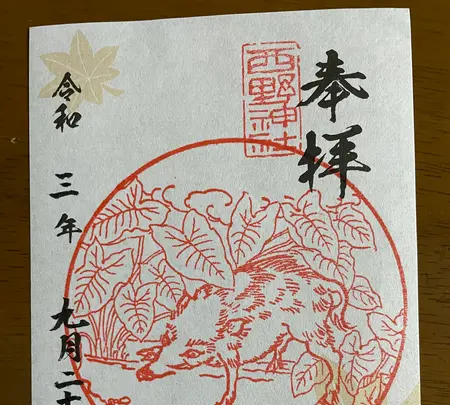 奉拝
西野神社
令和三年九月二十